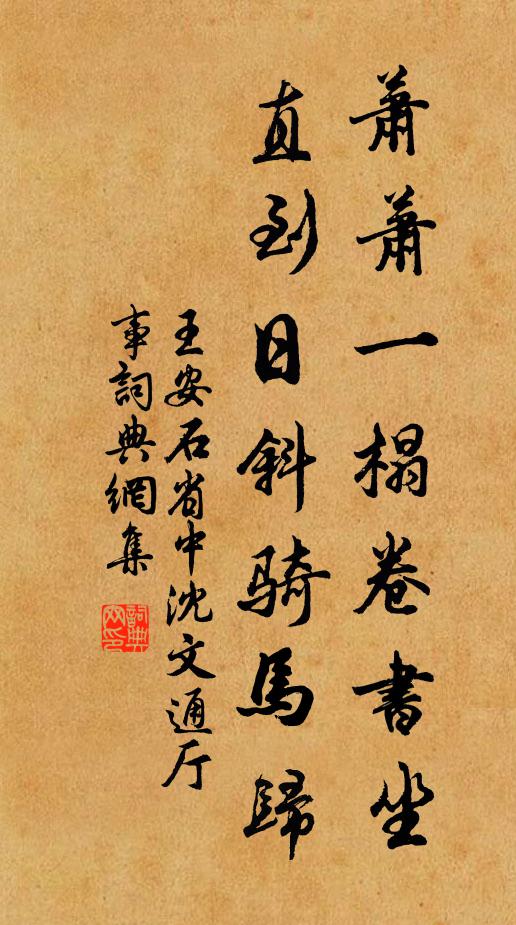 蕭蕭一榻卷書坐
直到日斜騎馬歸
王安石省中沈文通厅
事詞典網集
詞典
网印